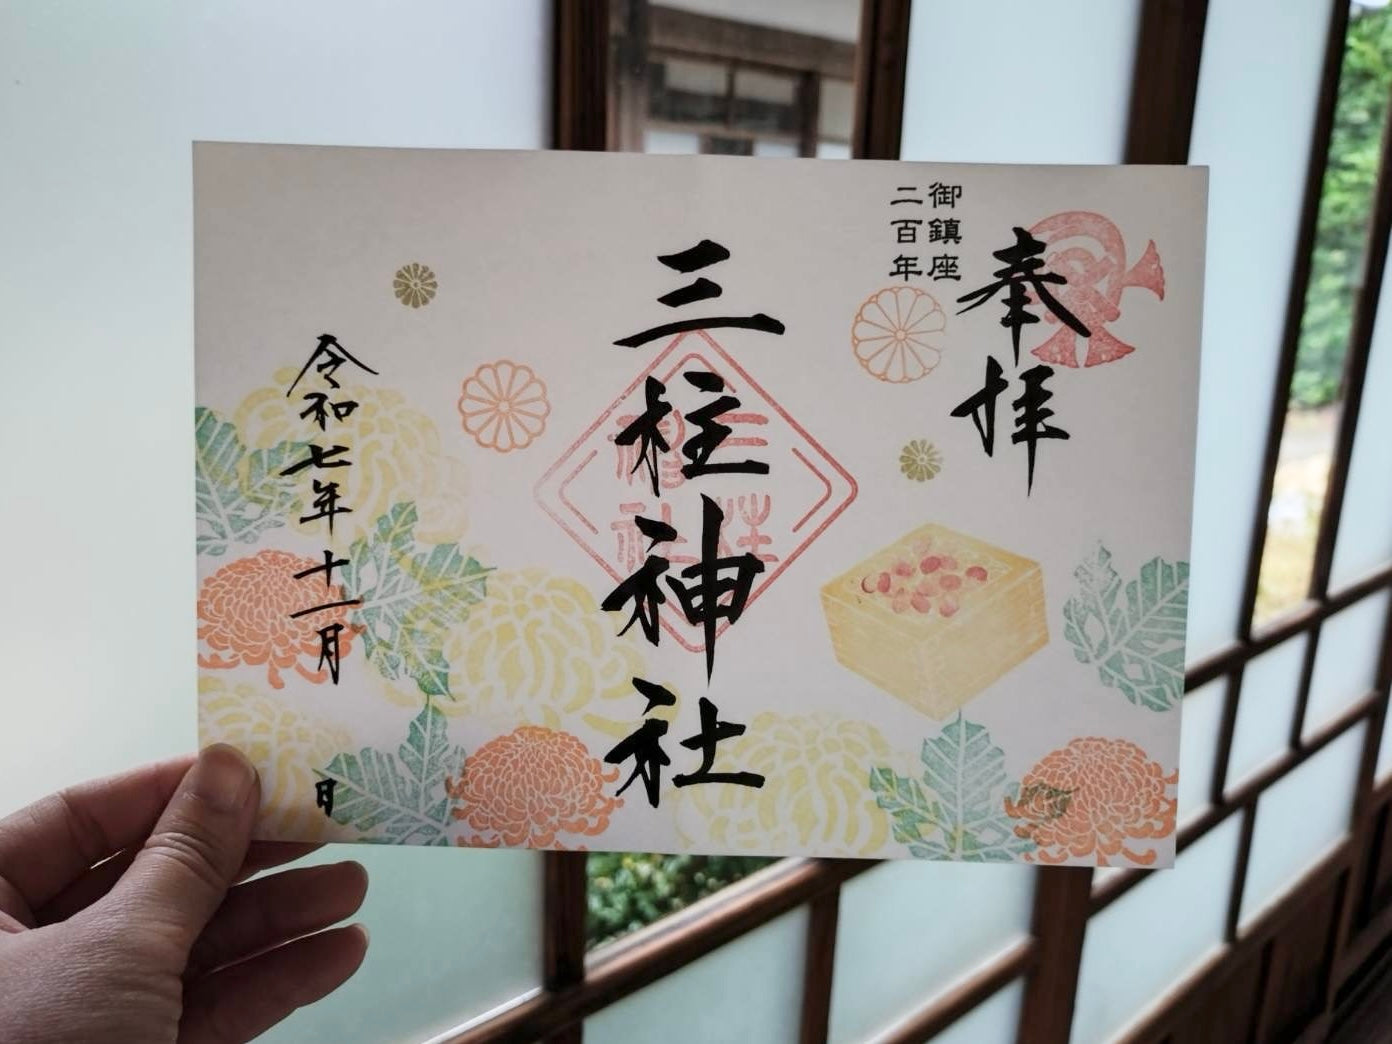 奉拝
御鎮座
二百年
三柱神社
三柱
神社
令和七年十一月 日